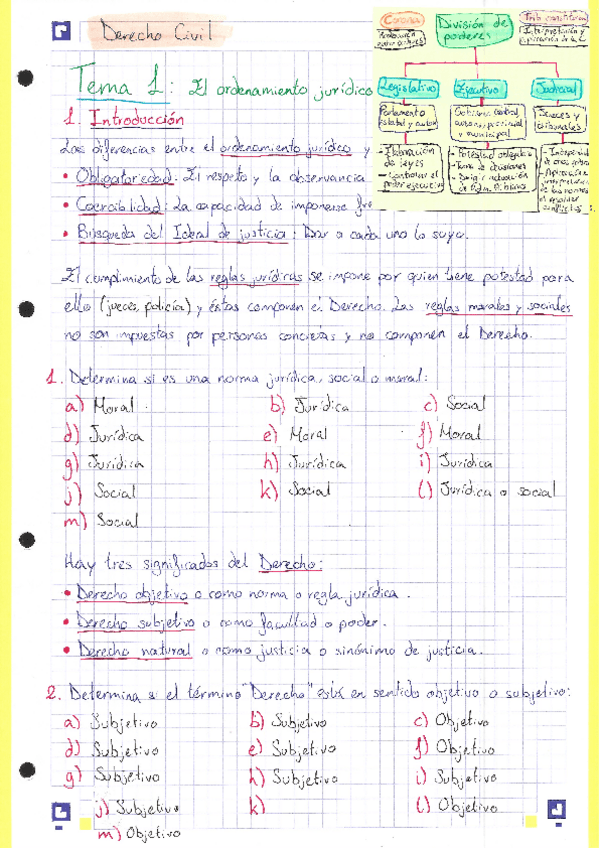 Derecho Civil
Tema 1: El ordenamiento jurídico
Corona
División de poderes
Legislativo
Ejecutivo
Judicial
Parlamento estatal y auton
Gobierno central, autonómico, provincial y municipal
Jueces y tribunales
Elaboración de leyes
Controlar el poder ejecutivo
Potestad
Toma de decisiones
Dirigir actuación de Adm. Pública
1. Introducción
Las diferencias entre el ordenamiento jurídico y
• Obligatoriedad: El respeto y la observancia
• Coercibilidad: La capacidad de imponerse
• Búsqueda del Ideal de justicia: Dar a cada uno lo suyo.
El cumplimiento de las reglas jurídicas se impone por quien tiene potestad para
ello (jueces, policía) y éstas componen el Derecho. Las reglas morales y sociales
no son impuestas por personas concretas y no componen el Derecho.
1. Determina si es una norma jurídica, social o moral:
a) Moral b) Jurídica c) Social
d) Jurídica e) Moral f) Moral
g) Jurídica h) Jurídica i) Jurídica
j) Social k) Social l) Jurídica o social
m) Social
Hay tres significados del Derecho:
• Derecho objetivo o como norma o regla jurídica.
• Derecho subjetivo o como facultad o poder.
• Derecho natural o como justicia o sinónimo de justicia.
2. Determina si el término "Derecho" está en sentido objetivo o subjetivo:
a) Subjetivo b) Subjetivo c) Objetivo
d) Subjetivo e) Subjetivo f) Objetivo
g) Subjetivo h) Subjetivo i) Subjetivo
j) Subjetivo k) l) Objetivo
m) Objetivo